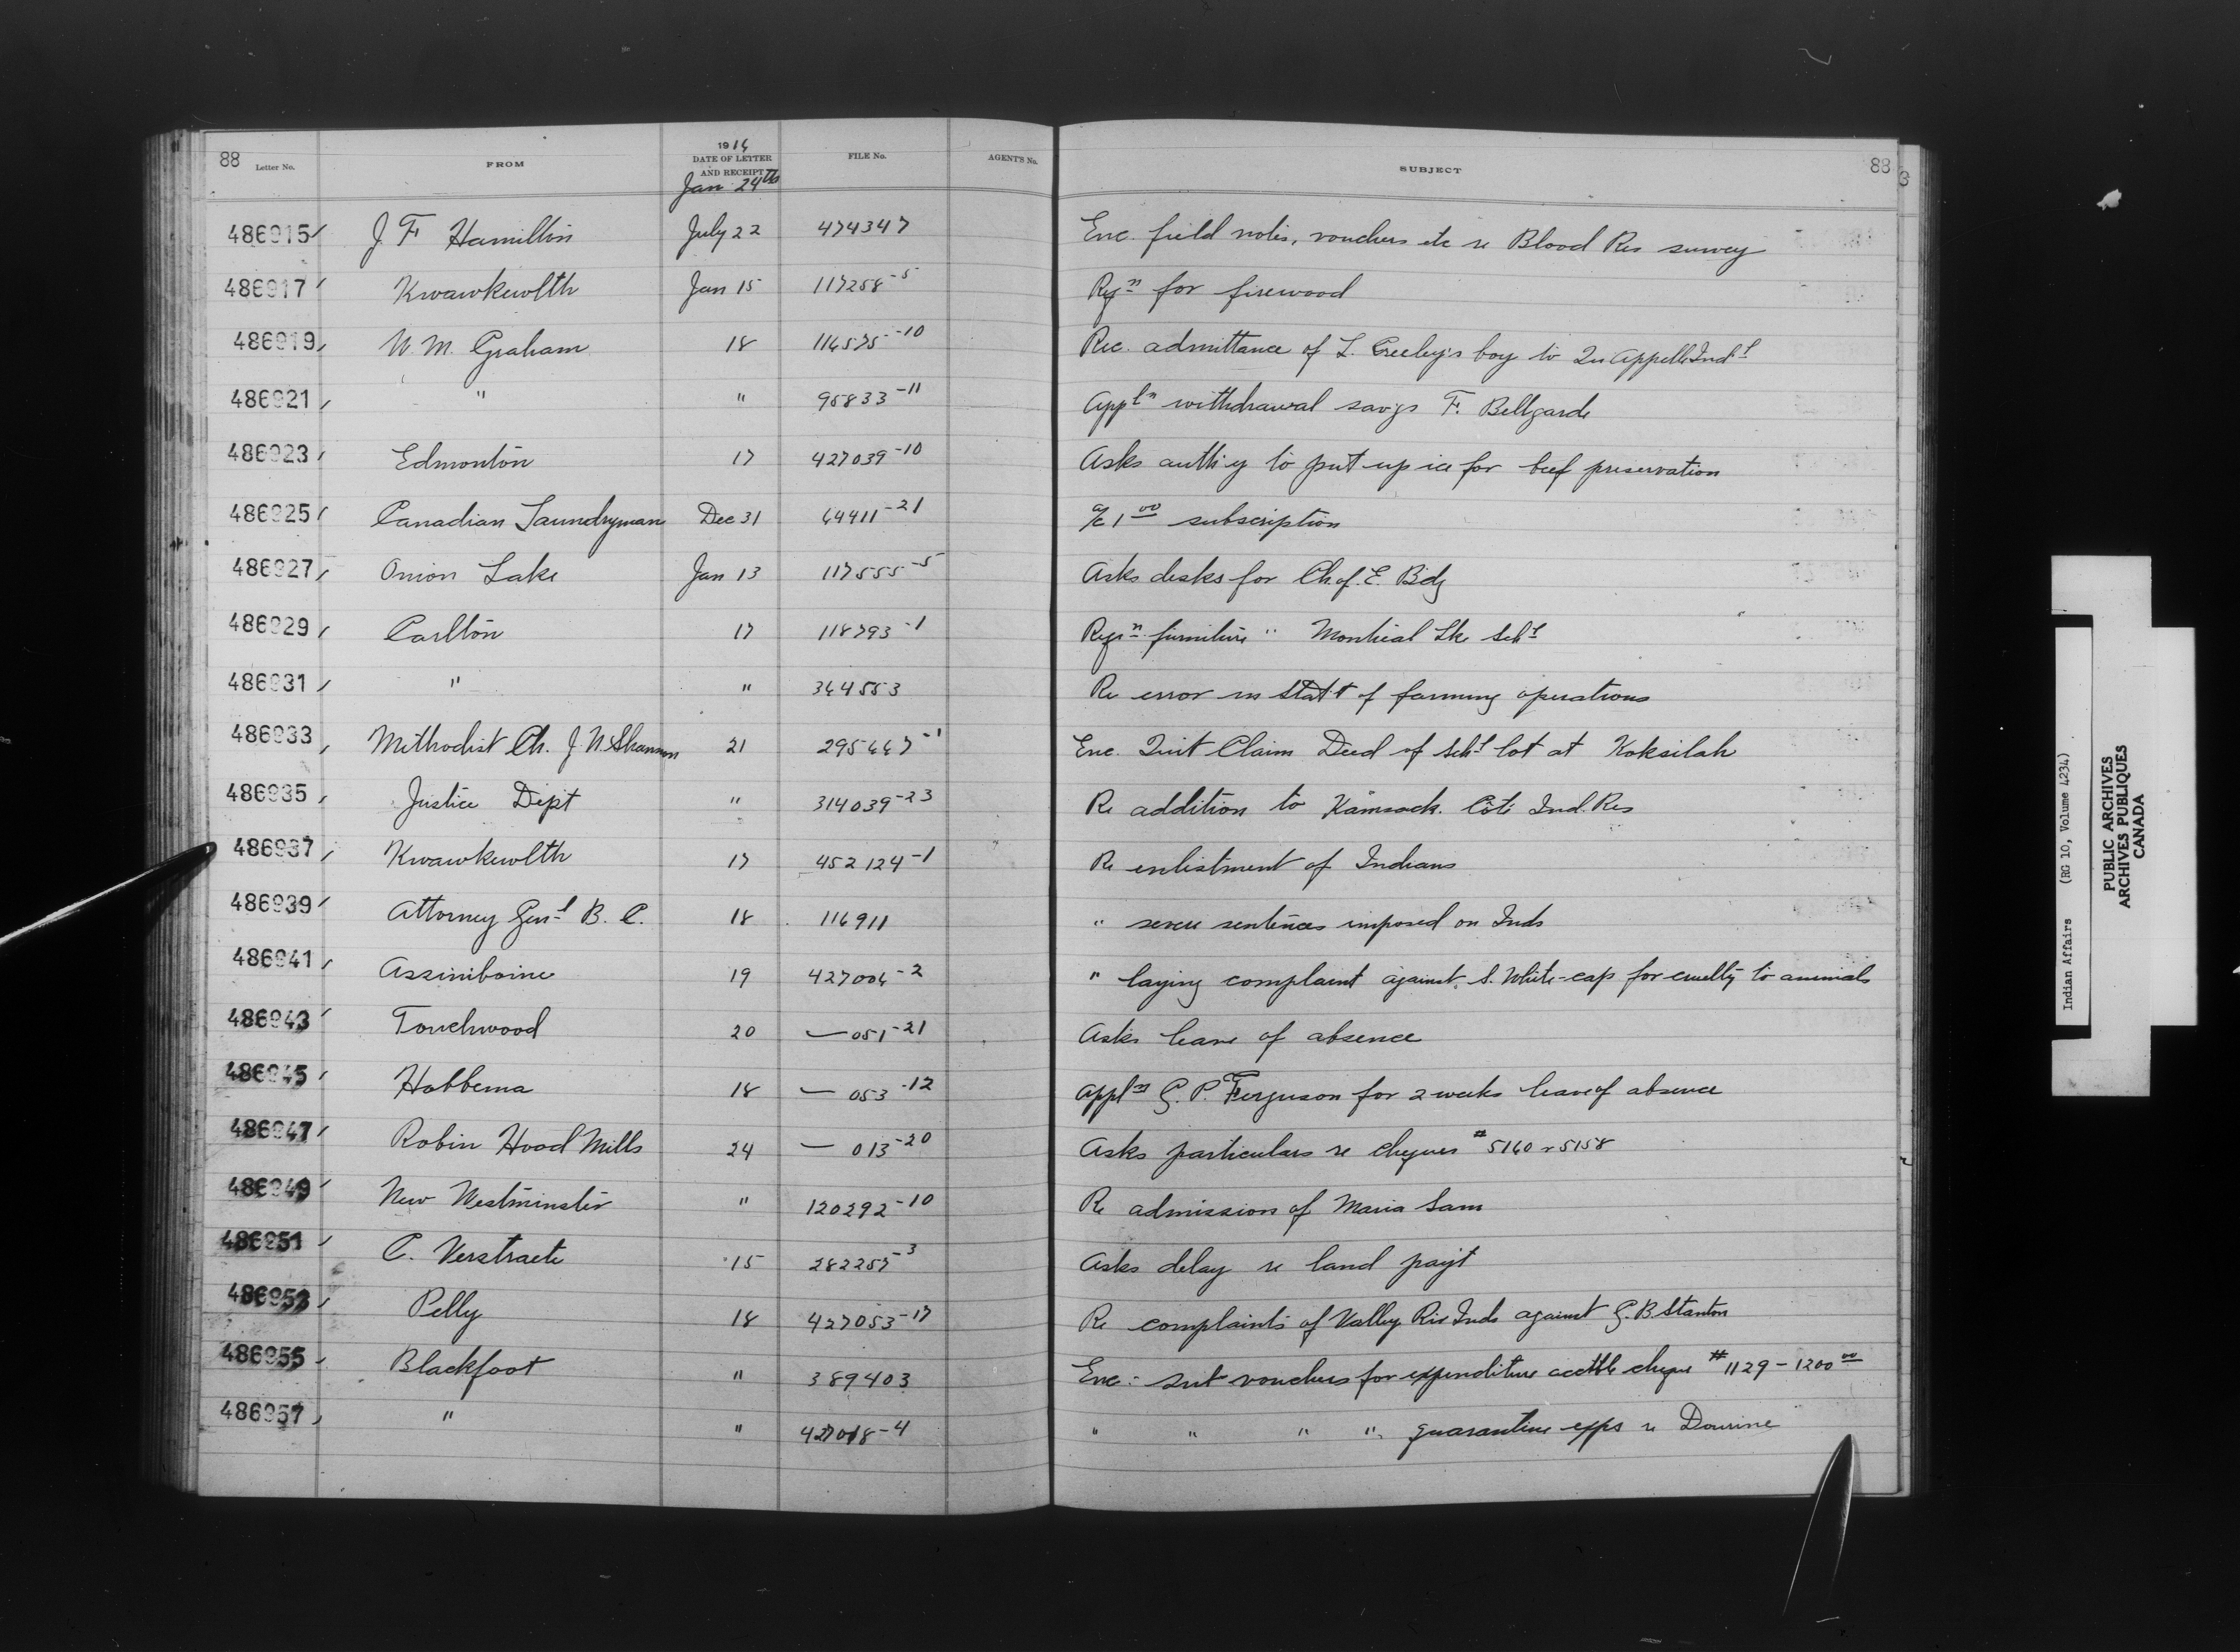 88 Letter No. FROM 1916 DATE OF LETTER AND RECEIPT Jan 24th FILE No. AGENT'S No. SUBJECT 88
486915 J. F. Hamilton July 22 474347 Enc. field notes, vouchers etc re Blood Res survey
486917 Kwawkewlth Jan 15 117258-5 Reqn for firewood
486919 W. M. Graham 18 116575-10 Rec. admittance of L. Creeley's boy to Qu Appelle Indl
486921 " " 95833-11 Appln withdrawal savgs F. Bellgarde
486923 Edmonton 17 427039-10 Asks authy to put up ice for beef preservation
486925 Canadian Laundryman Dec 31 64411-21 a/c 1 00 subscription
486927 Onion Lake Jan 13 117555-5 Asks desks for Ch. of E. Bdg
486929 Carlton 17 118793-1 Reqn furniture " Montreal Lk Schl
486931 " " 364553 Re error in Statt of farming operations
486933 Methodist Ch. J. N. Shannon 21 295667-1 Enc. Quit Claim Deed of Schl lot at Koksilah
486935 Justice Dept " 314039-23 Re addition to Kamsack. Côté Ind. Res
486937 Kwawkewlth 17 452124-1 Re enlistment of Indians
486939 Attorney Genl B. C. 18 116911 " severe sentences imposed on Inds
486941 Assiniboine 19 427006-2 " laying complaint against S. White-cap for cruelty to animals
486943 Touchwood 20 — 051-21 Asks leave of absence
486945 Hobbema 18 — 053-12 Appln G. P. Ferguson for 2 weeks leave of absence
486947 Robin Hood Mills 24 — 013-20 Asks particulars re cheques #5160 & 5158
486949 New Westminster " 120292-10 Re admission of Maria Sam
486951 C. Verstraete 15 282257-3 Asks delay re land payt
486953 Pelly 18 427053-17 Re complaints of Valley Riv Inds against G. B. Stanton
486955 Blackfoot " 389403 Enc. vouchers for expenditure cheque #1129 - 1200 00
486957 " " 427018-4 " " " " quarantine exps re Dourine
Indian Affairs (RG 10, Volume 4234)
PUBLIC ARCHIVES
ARCHIVES PUBLIQUES
CANADA